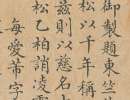 御製題東竺
松以千年稱
茲則以慈名
松乙柏詣凌雲
每愛蒂字